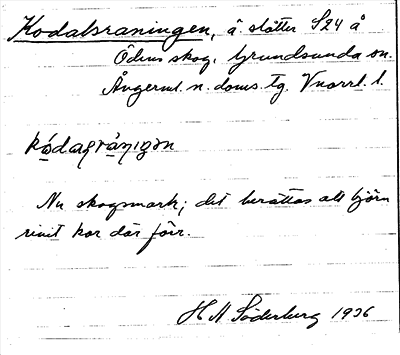 Kodalsraningen, å slåtter S24 å
Ödens skog, Grundsunda sn.
Ångerml. n. doms. tg. Vnorrl. l.
Nu skogsmark; det berättas att björn
rivit kor där förr.
H A Söderberg 1936